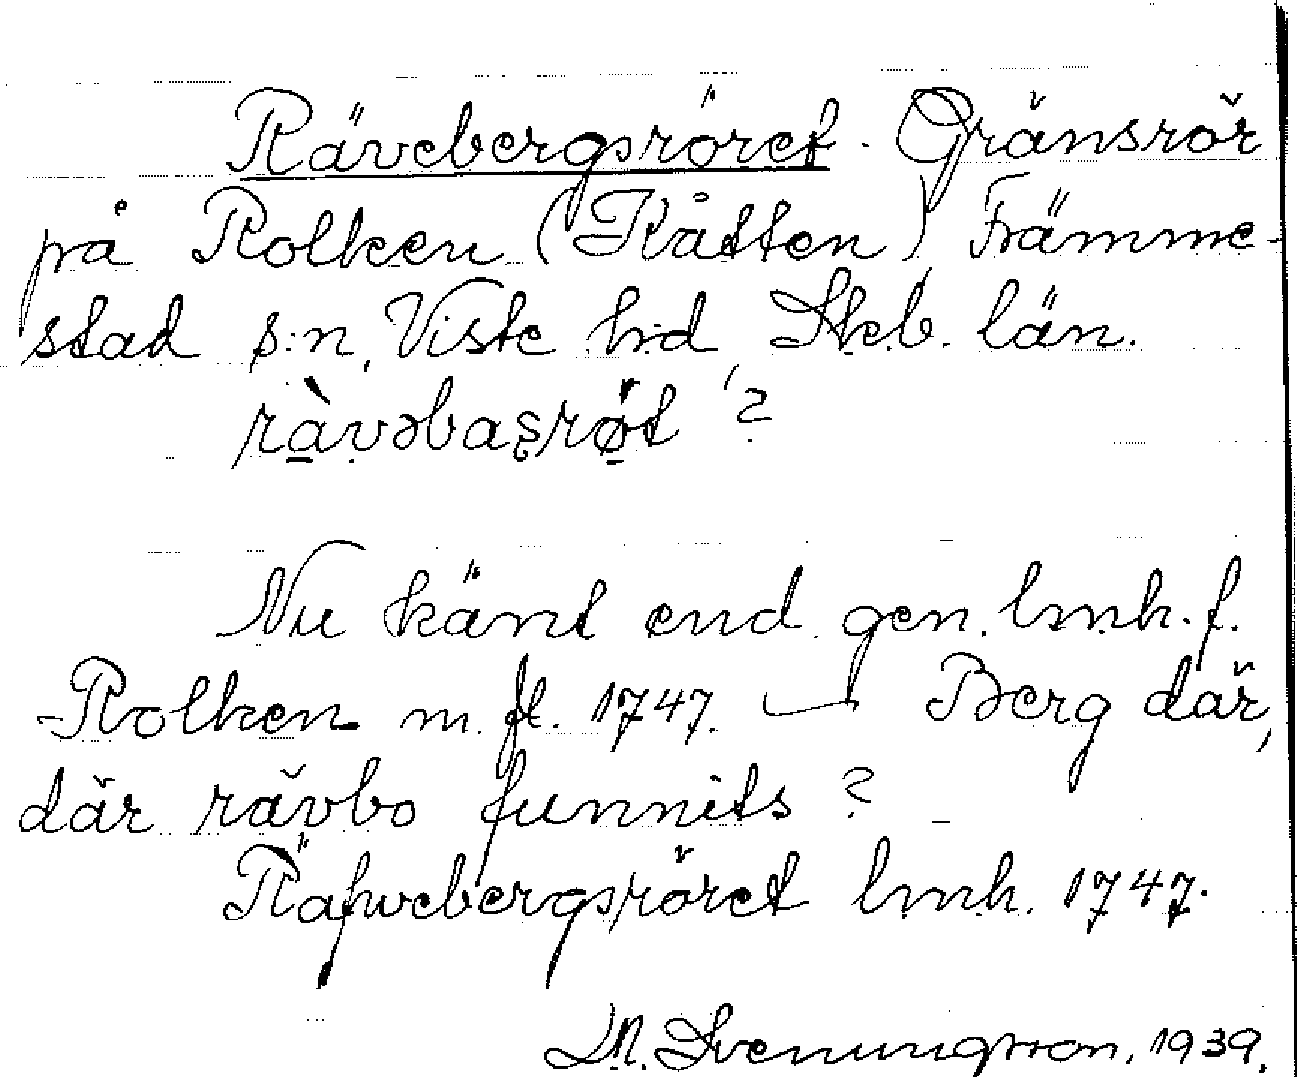 Rävebergsröret. Gränsrör
på Rolken (Kåtten) Främme-
stad s:n, Viste h:d Skb. län.
ràvəbaʂrø̀t ?
Nu känt end. gen. lmh. f.
Rolken m. fl. 1747. — Berg där,
där rävbo funnits?
Räfwebergsröret lmh. 1747.
M. Svenungsson, 1939.